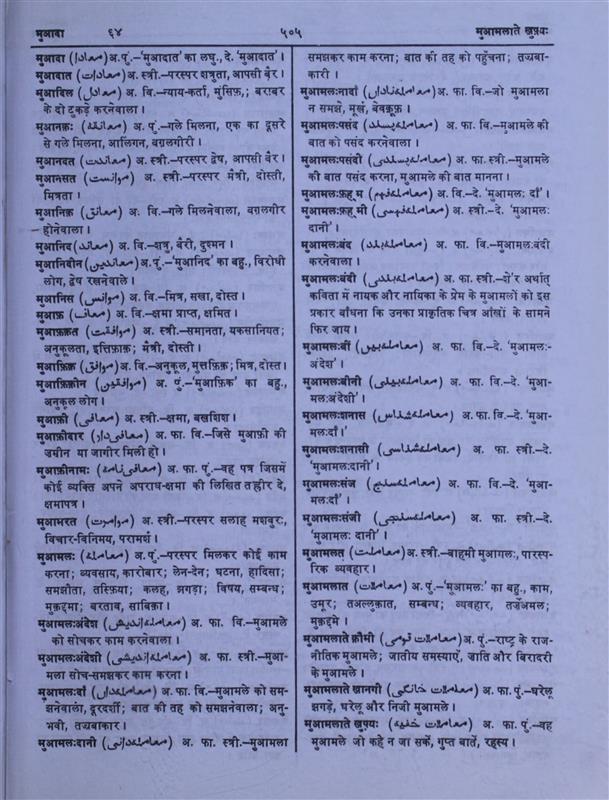 मुआदा ६४ ५०५ मुआमलाते ख़ुफ़्यः
मुआदा (معادا) अ. पुं.–'मुआदात' का लघु., दे. 'मुआदात'।
मुआदात (معادات) अ. स्त्री.–परस्पर शत्रुता, आपसी बैर।
मुआदिल (معادل) अ. वि.–न्याय-कर्ता, मुंसिफ़; बराबर
के दो टुकड़े करनेवाला।
मुआनक़ः (معانقہ) अ. पुं.–गले मिलना, एक का दूसरे
से गले मिलना, आलिंगन, बग़लगीरी।
मुआनदत (معاندت) अ. स्त्री.–परस्पर द्वेष, आपसी बैर।
मुआनसत (موانست) अ. स्त्री.–परस्पर मैत्री, दोस्ती,
मित्रता।
मुआनिक़ (معانق) अ. वि.–गले मिलनेवाला, बग़लगीर
होनेवाला।
मुआनिद (معاند) अ. वि.–शत्रु, बैरी, दुश्मन।
मुआनिदीन (معاندین) अ. पुं.–'मुआनिद' का बहु., विरोधी
लोग, द्वेष रखनेवाले।
मुआनिस (موانس) अ. वि.–मित्र, सखा, दोस्त।
मुआफ़ (معاف) अ. वि.–क्षमा प्राप्त, क्षमित।
मुआफ़क़त (موافقت) अ. स्त्री.–समानता, यकसानियत;
अनुकूलता, इत्तिफ़ाक़; मैत्री, दोस्ती।
मुआफ़िक़ (موافق) अ. वि.–अनुकूल, मुत्तफ़िक़; मित्र, दोस्त।
मुआफ़िक़ीन (موافقین) अ. पुं.–'मुआफ़िक़' का बहु.,
अनुकूल लोग।
मुआफ़ी (معافی) अ. स्त्री.–क्षमा, बख़शिश।
मुआफ़ीदार (معافی‌دار) अ. फा. वि.–जिसे मुआफ़ी की
ज़मीन या जागीर मिली हो।
मुआफ़ीनामः (معافی‌نامہ) अ. फा. पुं.–वह पत्र जिसमें
कोई व्यक्ति अपने अपराध-क्षमा की लिखित तह्रीर दे,
क्षमापत्र।
मुआमरत (موامرت) अ. स्त्री.–परस्पर सलाह मशवुरः,
विचार-विनिमय, परामर्श।
मुआमलः (معاملہ) अ. पुं.–परस्पर मिलकर कोई काम
करना; व्यवसाय, कारोबार; लेन-देन; घटना, हादिसा;
समझौता, तस्फ़िया; कलह, झगड़ा; विषय, सम्बन्ध;
मुक़द्दमा; बरताव, साबिक़ा।
मुआमलःअंदेश (معاملہ‌اندیش) अ. फा. वि.–मुआमले
को सोचकर काम करनेवाला।
मुआमलःअंदेशी (معاملہ‌اندیشی) अ. फा. स्त्री.–मुआ-
मला सोच-समझकर काम करना।
मुआमलःदाँ (معاملہ‌داں) अ. फा. वि.–मुआमले को सम-
झनेवाला, दूरदर्शी; बात की तह को समझनेवाला; अनु-
भवी, तज्रबाकार।
मुआमलःदानी (معاملہ‌دانی) अ. फा. स्त्री.–मुआमला
समझकर काम करना; बात की तह को पहुँचना; तज्रबा-
कारी।
मुआमलःनादाँ (معاملہ‌ناداں) अ. फा. वि.–जो मुआमला
न समझे, मूर्ख, बेवक़ूफ़।
मुआमलःपसंद (معاملہ‌پسند) अ. फा. वि.–मुआमले की
बात को पसंद करनेवाला।
मुआमलःपसंदी (معاملہ‌پسندی) अ. फा. स्त्री.–मुआमले
की बात पसंद करना, मुआमले की बात मानना।
मुआमलःफ़ह्म (معاملہ‌فہم) अ. वि.–दे. 'मुआमलः दाँ'।
मुआमलःफ़ह्मी (معاملہ‌فہمی) अ. स्त्री.–दे. 'मुआमलः
दानी'।
मुआमलःबंद (معاملہ‌بند) अ. फा. वि.–मुआमलःबंदी
करनेवाला।
मुआमलःबंदी (معاملہ‌بندی) अ. फा. स्त्री.–शे'र अर्थात्
कविता में नायक और नायिका के प्रेम के मुआमलों को इस
प्रकार बाँधना कि उनका प्राकृतिक चित्र आँखों के सामने
फिर जाय।
मुआमलःबीं (معاملہ‌بیں) अ. फा. वि.–दे. 'मुआमलः-
अंदेश'।
मुआमलःबीनी (معاملہ‌بینی) अ. फा. स्त्री.–दे. 'मुआ-
मलःअंदेशी'।
मुआमलःशनास (معاملہ‌شناس) अ. फा. वि.–दे. 'मुआ-
मलःदाँ।'
मुआमलःशनासी (معاملہ‌شناسی) अ. फा. स्त्री.–दे.
'मुआमलःदानी'।
मुआमलःसंज (معاملہ‌سنج) अ. फा. वि.–दे. 'मुआ-
मलःदाँ'।
मुआमलःसंजी (معاملہ‌سنجی) अ. फा. स्त्री.–दे.
'मुआमलः दानी'।
मुआमलत (معاملت) अ. स्त्री.–बाहमी मुआमलः, पारस्प-
रिक व्यवहार।
मुआमलात (معاملات) अ. पुं.–'मुआमलः' का बहु., काम,
उमूर; तअल्लुक़ात, सम्बन्ध; व्यवहार, तर्ज़ेअमल;
मुक़द्दमे।
मुआमलाते क़ौमी (معاملات قومی) अ. पुं.–राष्ट्र के राज-
नीतिक मुआमले; जातीय समस्याएँ, जाति और बिरादरी
के मुआमले।
मुआमलाते ख़ानगी (معاملات خانگی) अ. फा. पुं.–घरेलू
झगड़े, घरेलू और निजी मुआमले।
मुआमलाते ख़ुफ़्यः (معاملات خفیہ) अ. फा. पुं.–वह
मुआमले जो कहे न जा सकें, गुप्त बातें, रहस्य।